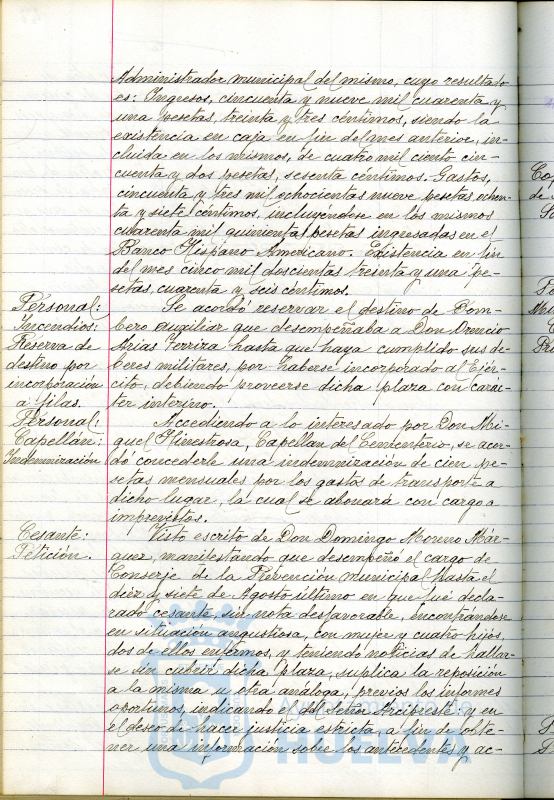 Administrador municipal del mismo, cuyo resultado
es: Ingresos, cincuenta y nueve mil cuarenta y
una pesetas, treinta y tres céntimos, siendo la
existencia en caja en fin del mes anterior, in-
cluida en los mismos, de cuatro mil ciento cin-
cuenta y dos pesetas, sesenta céntimos. Gastos,
cincuenta y tres mil ochocientas nueve pesetas ochen-
ta y siete céntimos, incluyendose en los mismos
cuarenta mil quinientas pesetas ingresadas en el
Banco Hispano Americano. Existencia en fin
del mes cinco mil doscientas treinta y una pe-
setas, cuarenta y seis céntimos.
Personal:
Incendios:
Reserva de
destino por
incorporación
a filas.
Se acordó reservar el destino de Bom-
bero auxiliar que desempeñaba a Don Orencio
Arias Ferrira hasta que haya cumplido sus de-
beres militares, por haberse incorporado al Ejér-
cito, debiendo proveerse dicha plaza con carác-
ter interino.
Personal:
Capellán:
Indemnización
Accediendo a lo interesado por Don Mi-
guel Hinestrosa, Capellán del Cementerio, se acor-
dó concederle una indemnización de cien pe-
setas mensuales por los gastos de transporte a
dicho lugar, la cual se abonará con cargo a
imprevistos.
Cesante:
Petición.
Visto escrito de Don Domingo Moreno Már-
quez, manifestando que desempeñó el cargo de
Conserje de la Prevención municipal hasta el
diez y siete de Agosto último en que fué decla-
rado cesante, sin nota desfavorable, encontrándose
en situación angustiosa, con mujer y cuatro hijos,
dos de ellos enfermos, y teniendo noticias de hallar-
se sin cubrir dicha plaza, suplica la reposición
a la misma u otra análoga, previos los informes
oportunos, indicando el del Señor Arcipreste: y en
el deseo de hacer justicia estricta, a fin de obte-
ner una información sobre los antecedentes y ac-
Ayuntamiento de
HUELVA